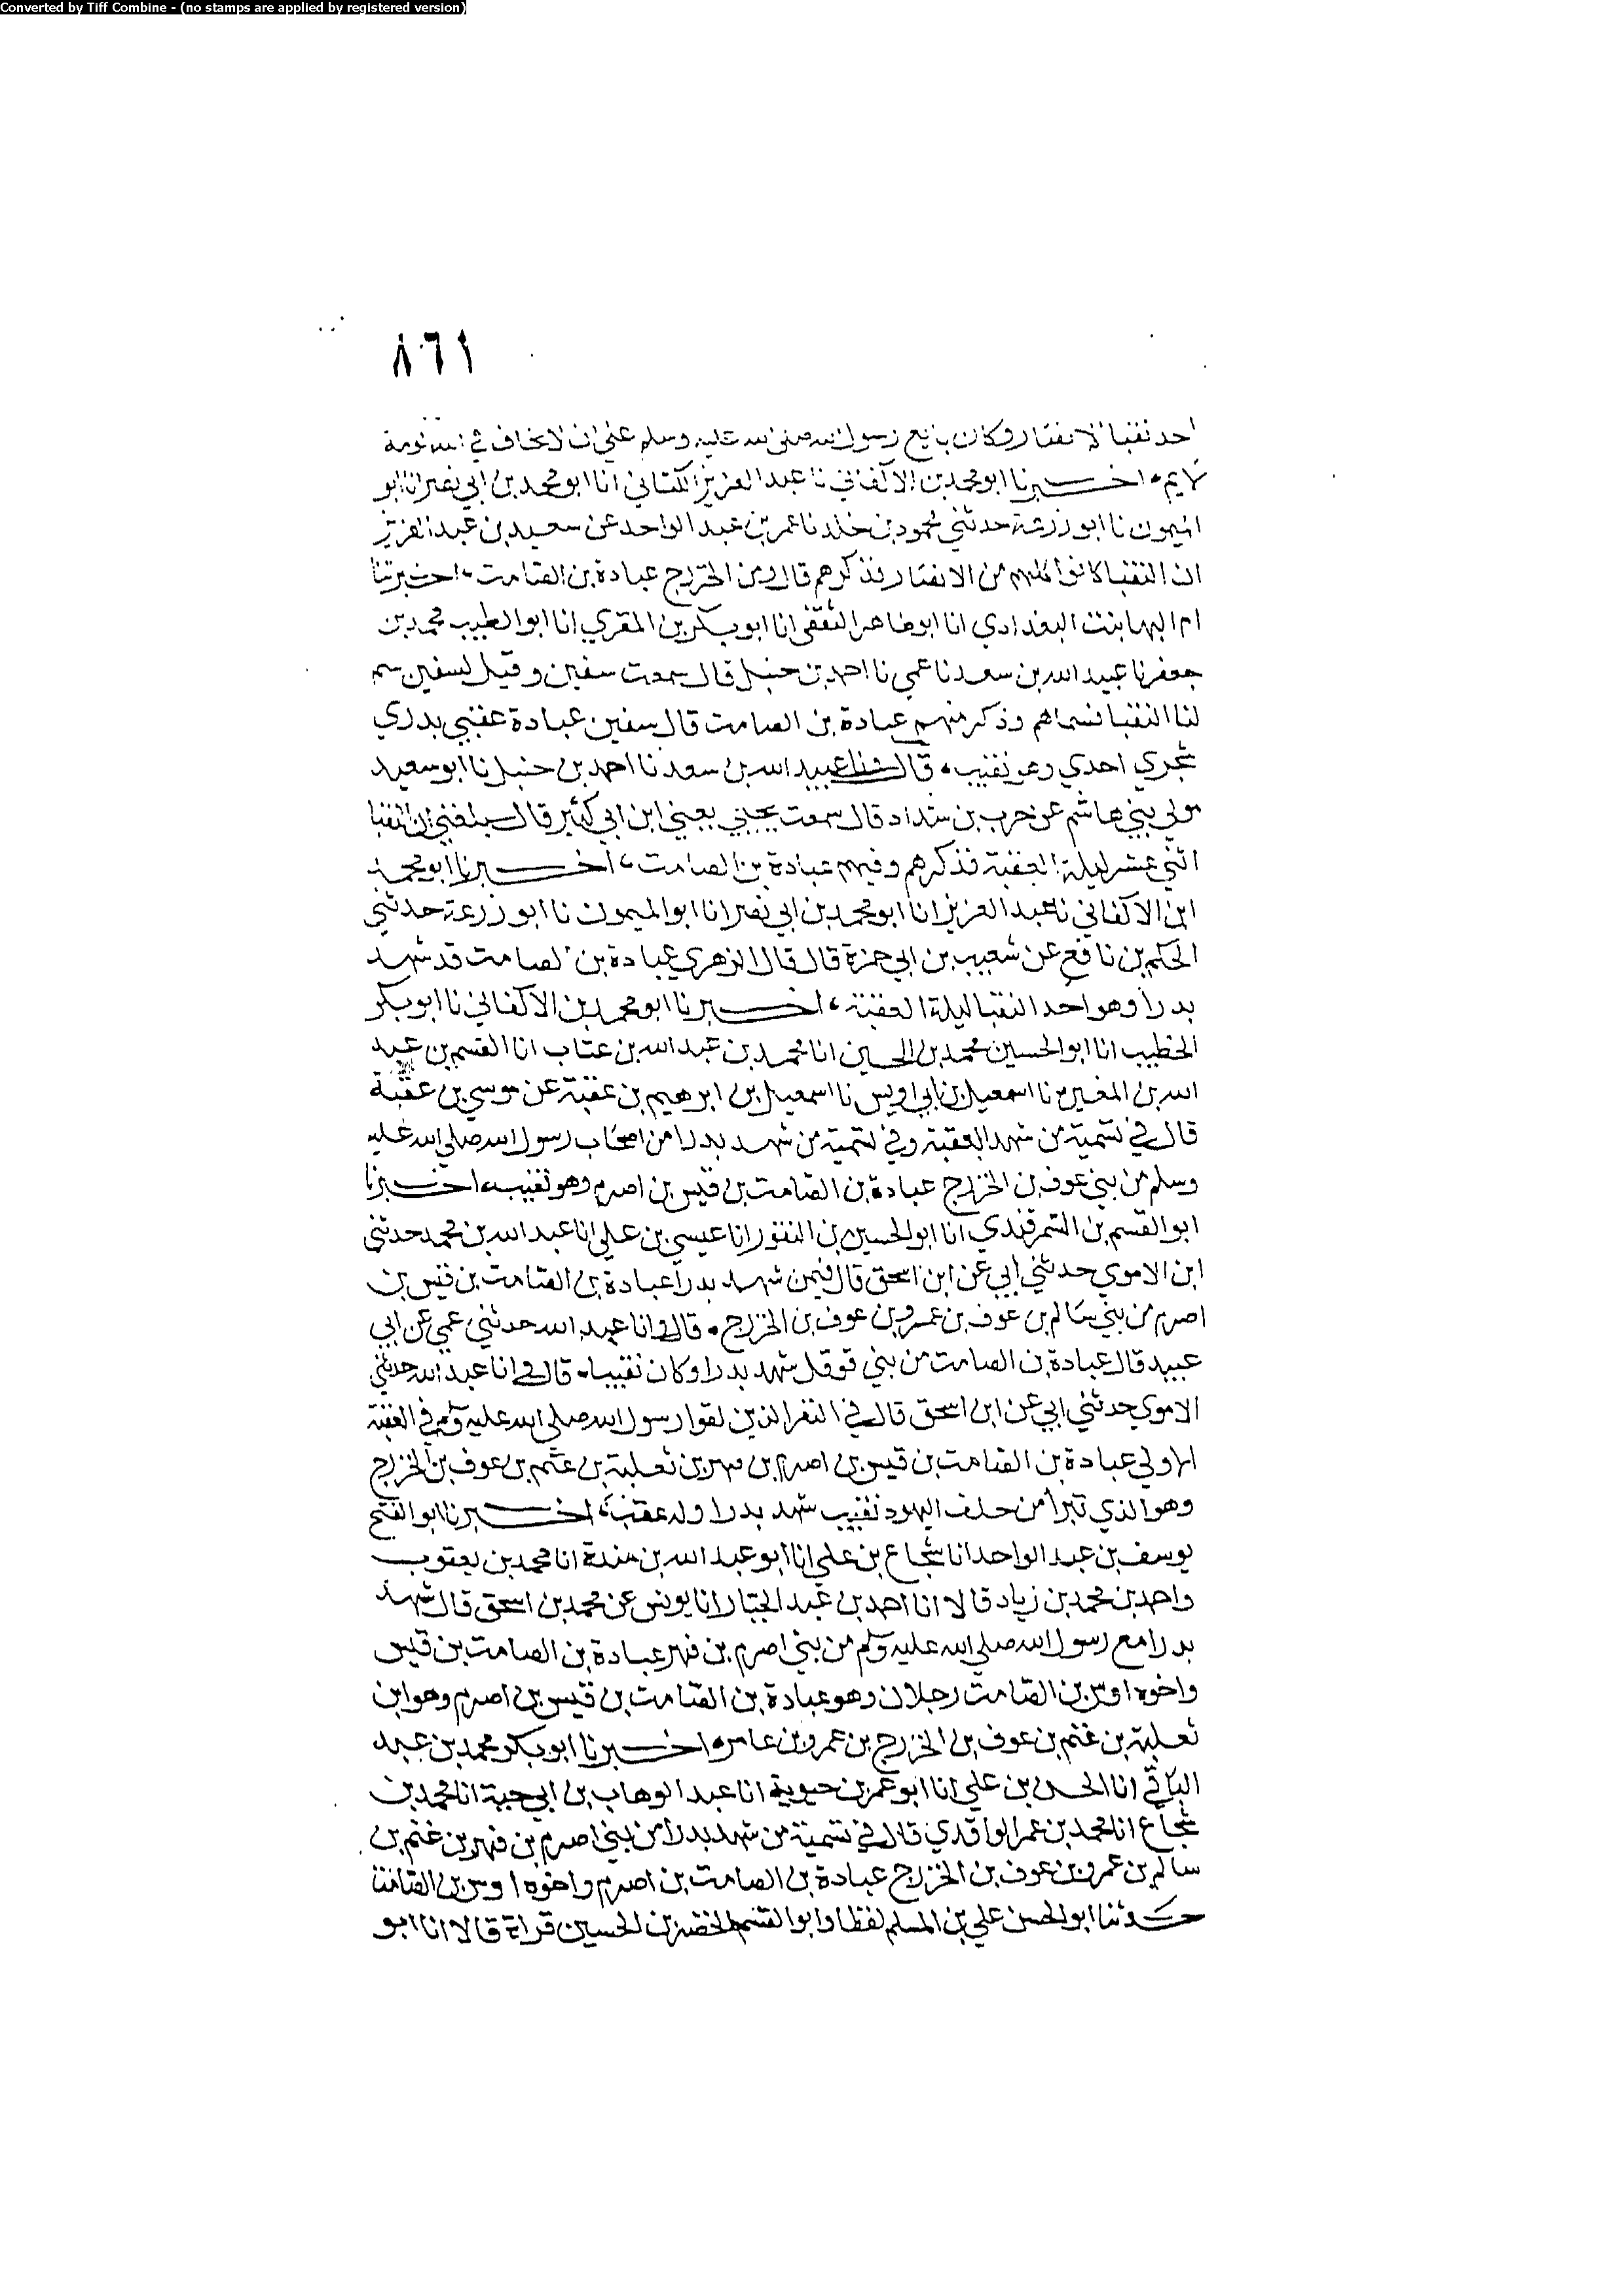 Converted by Tiff Combine - (no stamps are applied by registered version)
٨٦١
احد نقبا الانصار وكان بايع رسول الله صلى الله عليه وسلم على ان لا يخاف في الله لومة
لايم، اخبرنا ابو محمد بن الاكفاني نا عبد العزيز الكتاني انا ابو محمد بن ابي نصر انا ابو
الميمون نا ابو زرعة حدثني محمود بن خلد نا عمر بن عبد الواحد عن سعيد بن عبد العزيز
ان النقبا كانوا كلهم من الانصار فذكرهم قال ومن الخزرج عبادة بن الصامت، اخبرتنا
ام البها بنت البغدادي انا ابو طاهر الثقفي انا ابو بكر بن المقري انا ابو الطيب محمد بن
جعفر نا عبيد الله بن سعد نا عمي نا احمد بن حنبل قال سمعت سفين وقيل لسفين سم
لنا النقبا فسماهم وذكر منهم عبادة بن الصامت قال سفين عبادة عقبي بدري
شجري احدي وهو نقيب، قال ونا عبيد الله بن سعد نا احمد بن حنبل نا ابو سعيد
مولى بني هاشم عن حرب بن شداد قال سمعت يحيى يعني ابن ابي كثير قال بلغني ان النقبا
اثني عشر ليلة العقبة فذكرهم وفيهم عبادة بن الصامت، اخبرنا ابو محمد
ابن الاكفاني نا عبد العزيز انا ابو محمد بن ابي نصر انا ابو الميمون نا ابو زرعة حدثني
الحكم بن نافع عن شعيب بن ابي حمزة قال قال الزهري عبادة بن الصامت قد شهد
بدرا وهو احد النقبا ليلة العقبة، اخبرنا ابو محمد بن الاكفاني نا ابو بكر
الخطيب انا ابو الحسين محمد بن الحسين انا محمد بن عبد الله بن عتاب انا القسم بن عبد
الله بن المغيرة نا اسمعيل بن ابي اويس نا اسمعيل بن ابرهيم بن عقبة عن موسى بن عقبة
قال في تسمية من شهد العقبة وفي تسمية من شهد بدرا من اصحاب رسول الله صلى الله عليه
وسلم من بني عوف بن الخزرج عبادة بن الصامت بن قيس بن اصرم وهو نقيب، اخبرنا
ابو القسم بن السمرقندي انا ابو الحسين بن النقور انا عيسى بن علي انا عبد الله بن محمد حدثني
ابن الاموي حدثني ابي عن ابن اسحق قال فيمن شهد بدرا عبادة بن الصامت بن قيس بن
اصرم من بني سالم بن عوف بن عمرو بن عوف بن الخزرج، قال وانا عبد الله حدثني عمي عن ابي
عبيد قال عبادة بن الصامت من بني قوقل شهد بدرا وكان نقيبا، قال وانا عبد الله حدثني
الاموي حدثني ابي عن ابن اسحق قال في النفر الذين لقوا رسول الله صلى الله عليه وسلم في العقبة
الاولى عبادة بن الصامت بن قيس بن اصرم بن فهر بن ثعلبة بن غنم بن عوف بن الخزرج
وهو الذي تبرا من حلف اليهود نقيب شهد بدرا وله عقب، اخبرنا ابو الفتح
يوسف بن عبد الواحد انا شجاع بن علي انا ابو عبد الله بن مندة انا محمد بن يعقوب
واحمد بن محمد بن زياد قالا انا احمد بن عبد الجبار انا يونس عن محمد بن اسحق قال شهد
بدرا مع رسول الله صلى الله عليه وسلم من بني اصرم بن فهر عبادة بن الصامت بن قيس
واخوه اوس بن الصامت رجلان وهو عبادة بن الصامت بن قيس بن اصرم وهو ابن
ثعلبة بن غنم بن عوف بن الخزرج بن عمرو بن عامر، اخبرنا ابو بكر محمد بن عبد
الباقي انا الحسن بن علي انا ابو عمر بن حيوية انا عبد الوهاب بن ابي حية انا محمد بن
شجاع انا محمد بن عمر الواقدي قال في تسمية من شهد بدرا من بني اصرم بن فهر بن غنم بن
سالم بن عمرو بن عوف بن الخزرج عبادة بن الصامت بن اصرم واخوه اوس بن الصامت
حدثنا ابو الحسن علي بن المسلم لفظا وابو القسم الخضر بن الحسين قراة قالا انا ابو